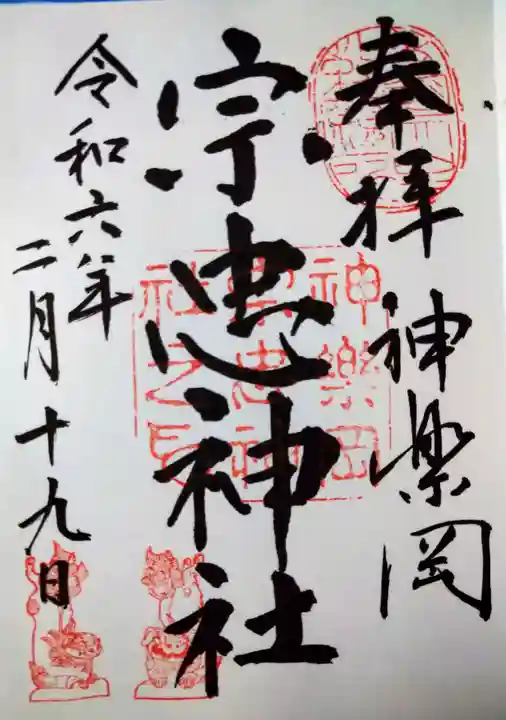 奉拝
神楽岡
宗忠神社
令和六年
二月十九日
神樂岡
宗忠神
社之印